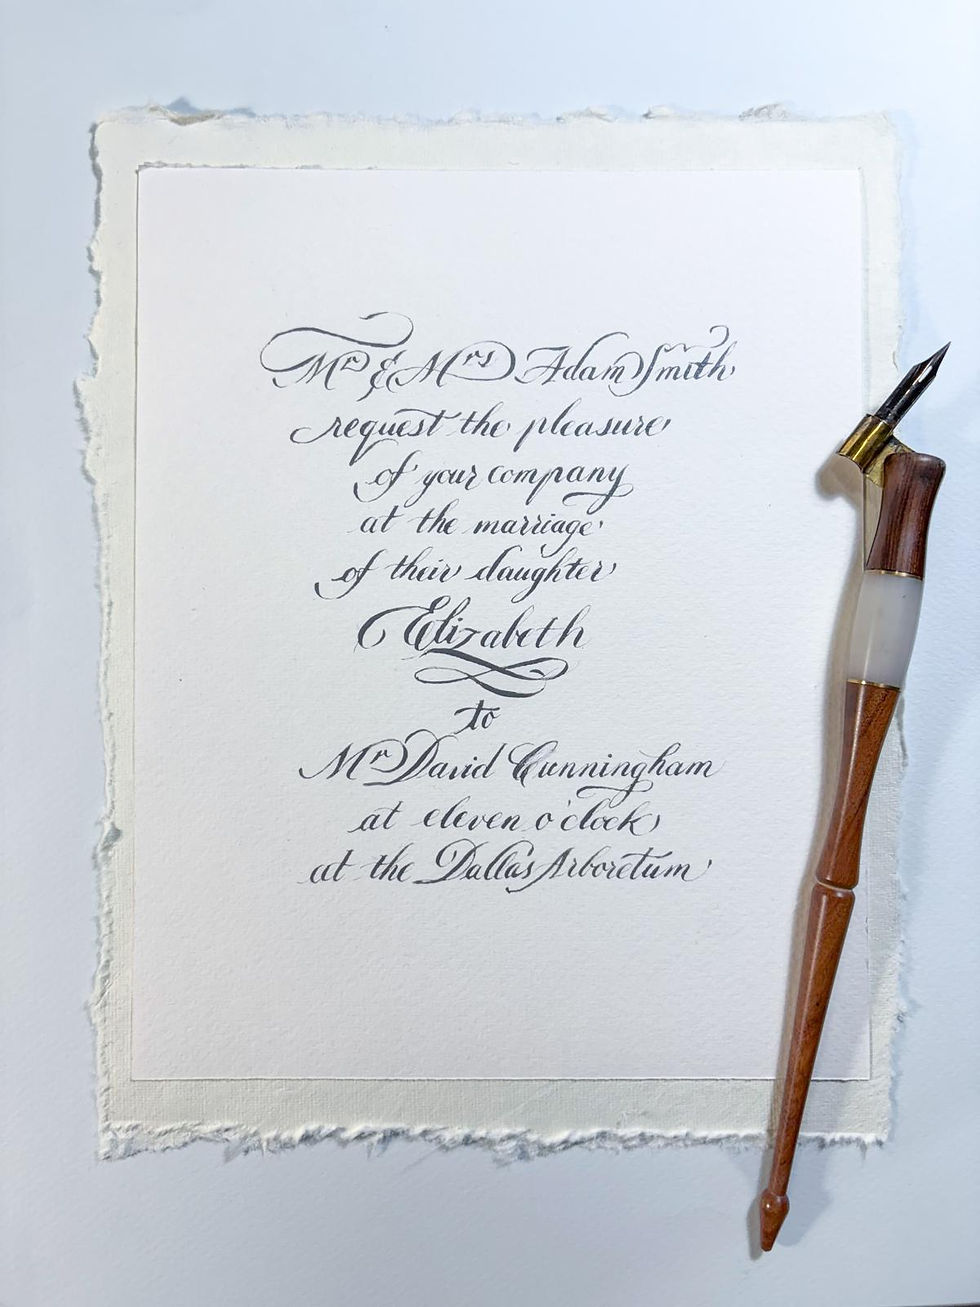 Mr & Mrs Adam Smith
request the pleasure
of your company
at the marriage
of their daughter
Elizabeth
to
Mr David Cunningham
at eleven o'clock
at the Dallas Arboretum